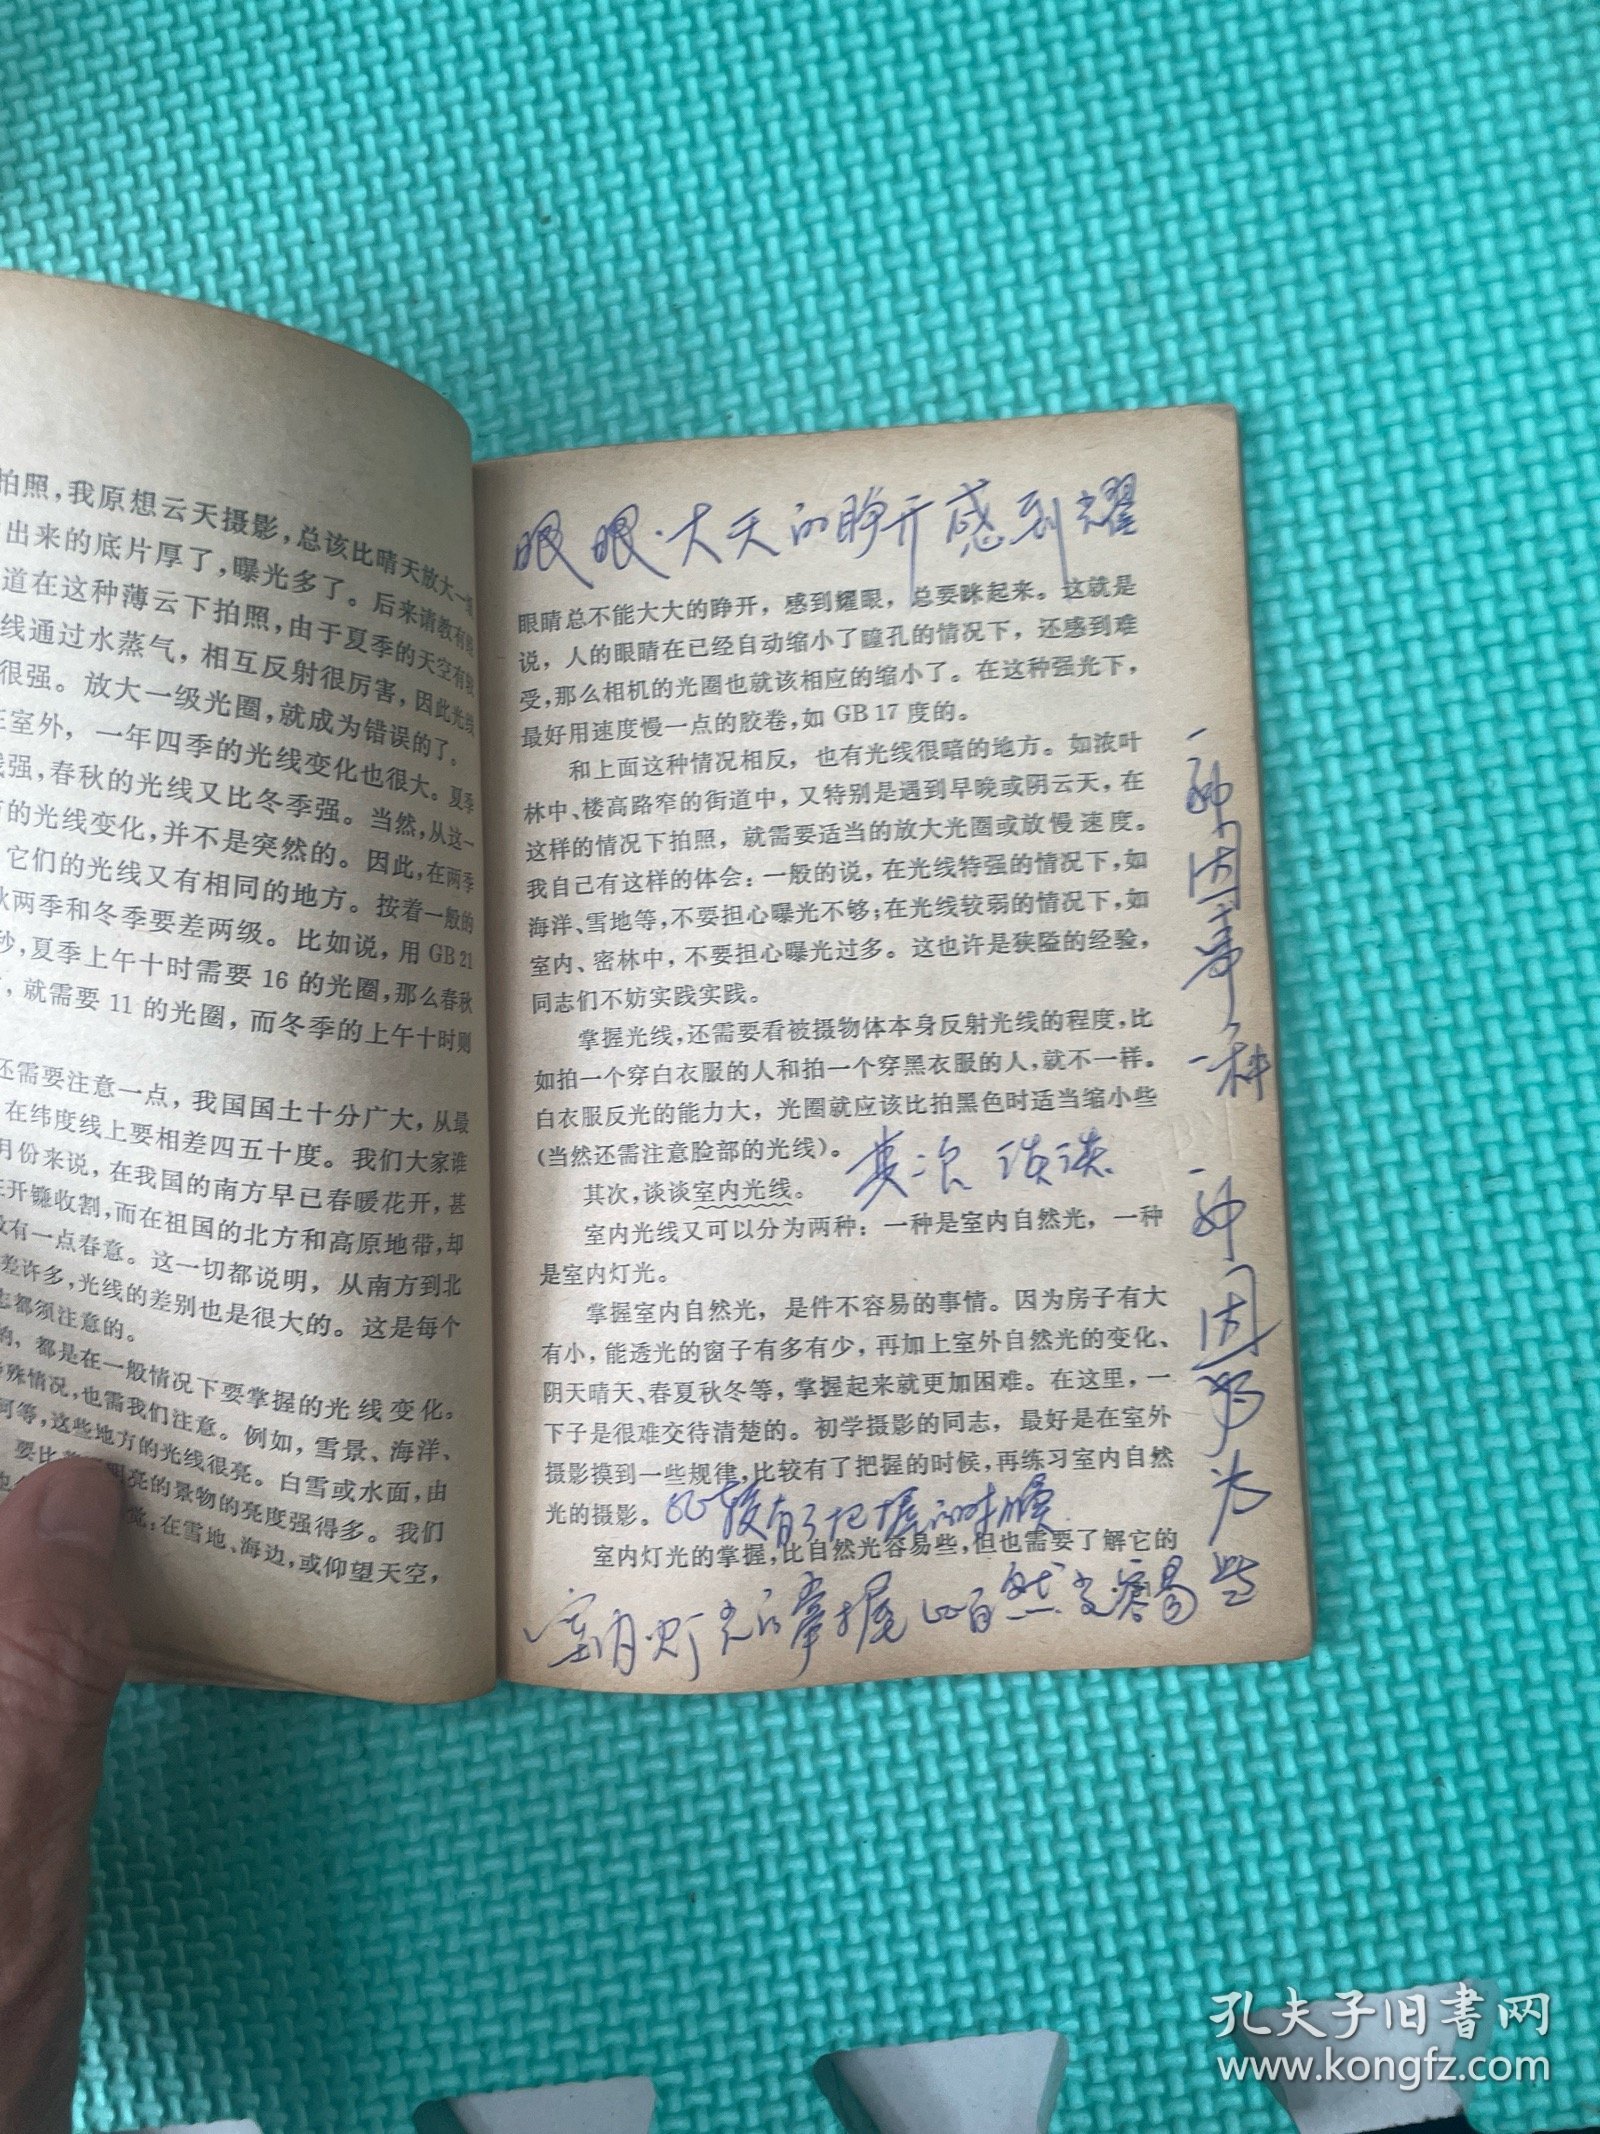 拍照，我原想云天摄影，总该比晴天放大一
出来的底片厚了，曝光多了。后来请教有
道在这种薄云下拍照，由于夏季的天空有
线通过水蒸气，相互反射很厉害，因此光线
很强。放大一级光圈，就成为错误的了。
室外，一年四季的光线变化也很大。夏季
强，春秋的光线又比冬季强。当然，从这一
的光线变化，并不是突然的。因此，在两季
它们的光线又有相同的地方。按着一般的
秋两季和冬季要差两级。比如说，用 GB 21
秒，夏季上午十时需要 16 的光圈，那么春秋
，就需要 11 的光圈，而冬季的上午十时则
还需要注意一点，我国国土十分广大，从最
在纬度线上要相差四五十度。我们大家谁
月份来说，在我国的南方早已春暖花开，甚
开镰收割，而在祖国的北方和高原地带，却
有一点春意。这一切都说明，从南方到北
差许多，光线的差别也是很大的。这是每个
都须注意的。
，都是在一般情况下要掌握的光线变化。
殊情况，也需我们注意。例如，雪景、海洋、
河等，这些地方的光线很亮。白雪或水面，由
要比
亮的景物的亮度强得多。我们
觉：在雪地、海边，或仰望天空，
眼眼·大天的睁开感到耀
眼睛总不能大大的睁开，感到耀眼，总要眯起来。这就是
说，人的眼睛在已经自动缩小了瞳孔的情况下，还感到难
受，那么相机的光圈也就该相应的缩小了。在这种强光下，
最好用速度慢一点的胶卷，如 GB 17 度的。
和上面这种情况相反，也有光线很暗的地方。如浓叶
林中、楼高路窄的街道中，又特别是遇到早晚或阴云天，在
这样的情况下拍照，就需要适当的放大光圈或放慢速度。
我自己有这样的体会：一般的说，在光线特强的情况下，如
海洋、雪地等，不要担心曝光不够；在光线较弱的情况下，如
室内、密林中，不要担心曝光过多。这也许是狭隘的经验，
同志们不妨实践实践。
掌握光线，还需要看被摄物体本身反射光线的程度，比
如拍一个穿白衣服的人和拍一个穿黑衣服的人，就不一样。
白衣服反光的能力大，光圈就应该比拍黑色时适当缩小些
（当然还需注意脸部的光线）。
其次 谈谈
其次，谈谈室内光线。
室内光线又可以分为两种：一种是室内自然光，一种
是室内灯光。
掌握室内自然光，是件不容易的事情。因为房子有大
有小，能透光的窗子有多有少，再加上室外自然光的变化、
阴天晴天、春夏秋冬等，掌握起来就更加困难。在这里，一
下子是很难交待清楚的。初学摄影的同志，最好是在室外
摄影摸到一些规律，比较有了把握的时候，再练习室内自然
光的摄影。
比较有了把握的时候
室内灯光的掌握，比自然光容易些，但也需要了解它的
室内灯光的掌握比自然光容易些
孔夫子旧书网
www.kongfz.com